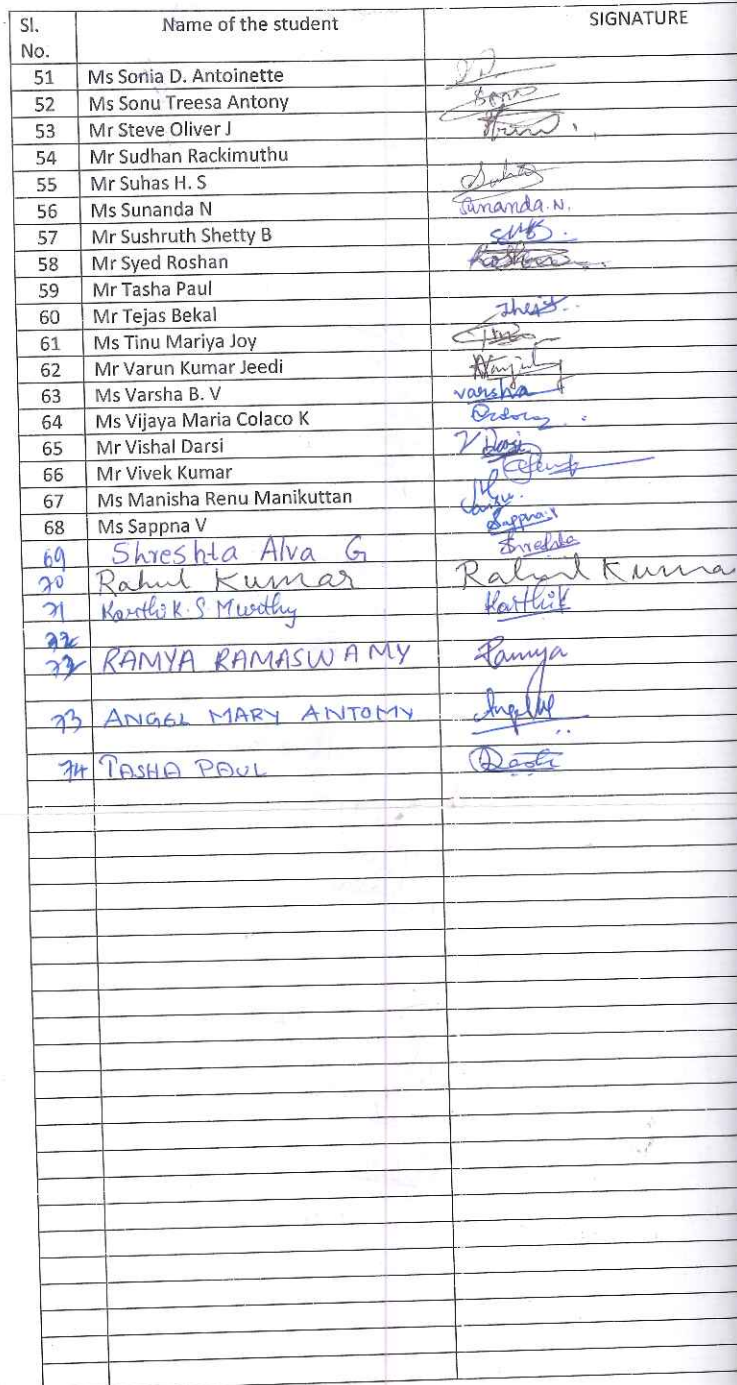 Sl. No. Name of the student SIGNATURE
51 Ms Sonia D. Antoinette
52 Ms Sonu Treesa Antony Sonu
53 Mr Steve Oliver J
54 Mr Sudhan Rackimuthu
55 Mr Suhas H. S Suhas
56 Ms Sunanda N Sunanda. N.
57 Mr Sushruth Shetty B
58 Mr Syed Roshan Roshan
59 Mr Tasha Paul
60 Mr Tejas Bekal
61 Ms Tinu Mariya Joy
62 Mr Varun Kumar Jeedi
63 Ms Varsha B. V varsha
64 Ms Vijaya Maria Colaco K
65 Mr Vishal Darsi
66 Mr Vivek Kumar
67 Ms Manisha Renu Manikuttan
68 Ms Sappna V Sappna V
69 Shreshta Alva G Shreshta
70 Rahul Kumar Rahul Kuma
71 Karthik. S Murthy Karthik
72 RAMYA RAMASWAMY Ramya
73 ANGEL MARY ANTOMY
74 TASHA PAUL